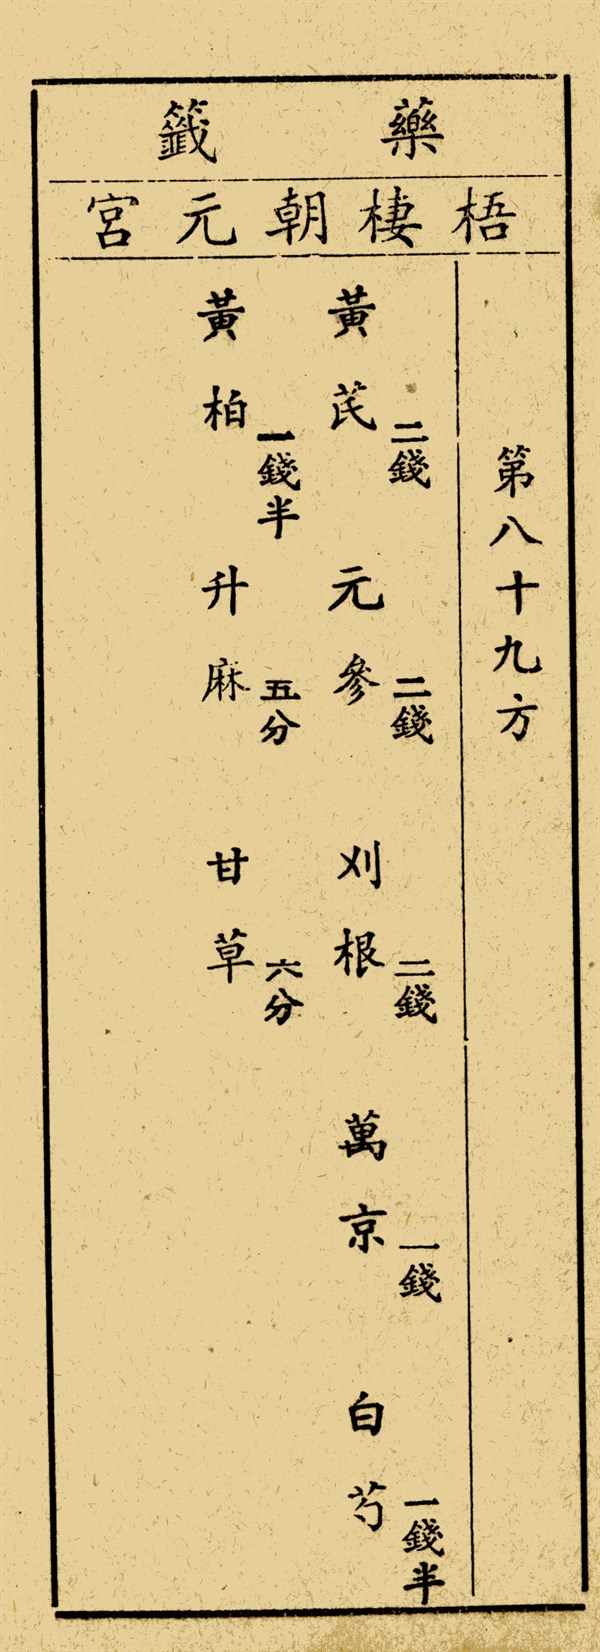 藥籤
梧棲朝元宮
第八十九方
黃芪二錢 元參二錢 刈根二錢 萬京一錢 白芍一錢半
黃柏一錢半 升麻五分 甘草六分